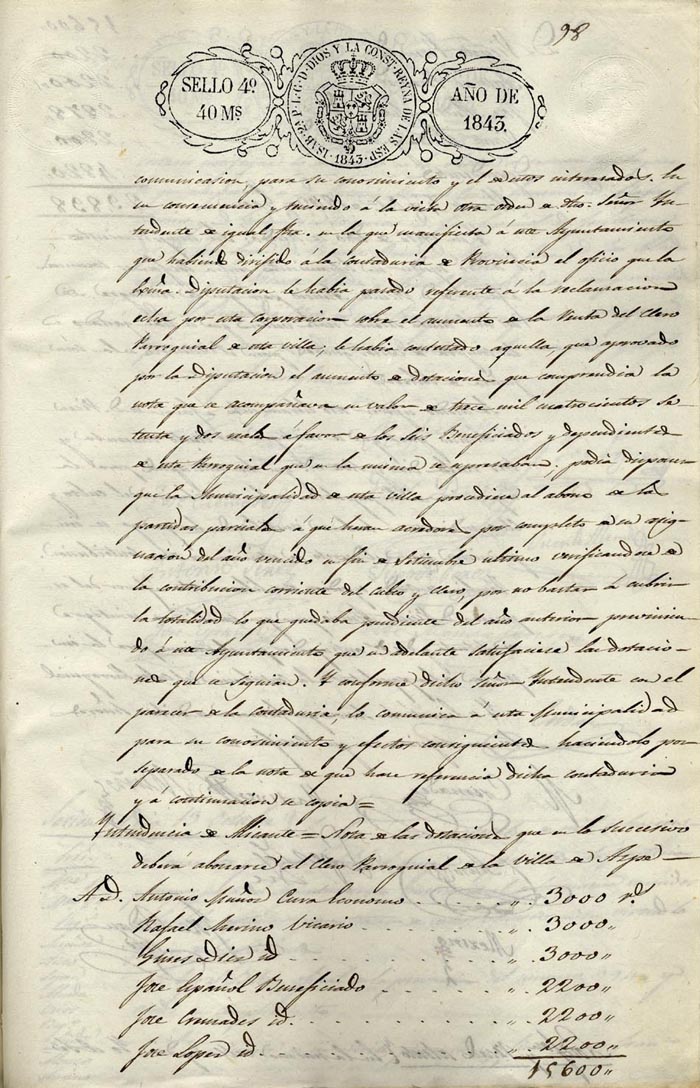 98
SELLO 4º 40 Ms
ISAB. 2ª P. L. G. D. DIOS Y LA CONST. REYNA DE LAS ESP. 1843.
AÑO DE 1843.
comunicasion, para su conosimiento y el de interesados. En
su consecuencia y teniendo á la vista otra orden de dho. Señor Yn-
tendente de igual fha. en la que manifiesta á este Ayuntamiento
que habiendo dirifido á la contaduria de Provincia el oficio que la
Diputacion le habia pasado referente á la reclamacion
echa por esta Corporacion sobre el aumento de la Renta del Clero
Parroquial de esta villa; le habia contestado aquella que aprovado
por la Diputacion el aumento de dotaciones que comprendia la
nota que se acompañava su valor de trece mil cuatrocientos se-
tenta y dos reales á favor de los Seis Beneficiados y dependientes
de esta Parroquial que en la misma se espresaban; podia disponer
que la Municipalidad de esta villa procediese al abono de las
partidas parciales á que heran acredores por completo de su asig-
nacion del año vencido en fin de Setiembre ultimo verificandose de
la contribucion corriente del Culto y Clero, por no bastar á cubrir
la totalidad lo que quedaba pendiente del año anterior previnien-
do á este Ayuntamiento que en adelante satisfaciese las dotacio-
nes que se siguian. Y conforme dicho Señor Yntendente con el
parecer de la contaduria, lo comunica á esta Municipalidad
para su conosimiento y efectos consiguientes haciendolo por
separado de la nota de que hase referencia dicha contaduria
y á continuacion se copia =
Yntendencia de Alicante = Nota de las dotaciones que en lo succesivo
deberá abonarse al Clero Parroquial de la Villa de Aspe =
A D. Antonio Muñoz Cura Economo . . . . . " 3000 rs
Rafael Merino Vicario . . . . . . " 3000 "
Gines Diez id . . . . . . . " 3000 "
Jose Español Beneficiado . . . . . " 2200 "
Jose Cremades id. . . . . . . " 2200 "
Jose Lopez id. . . . . . . . " 2200 "
15600 "